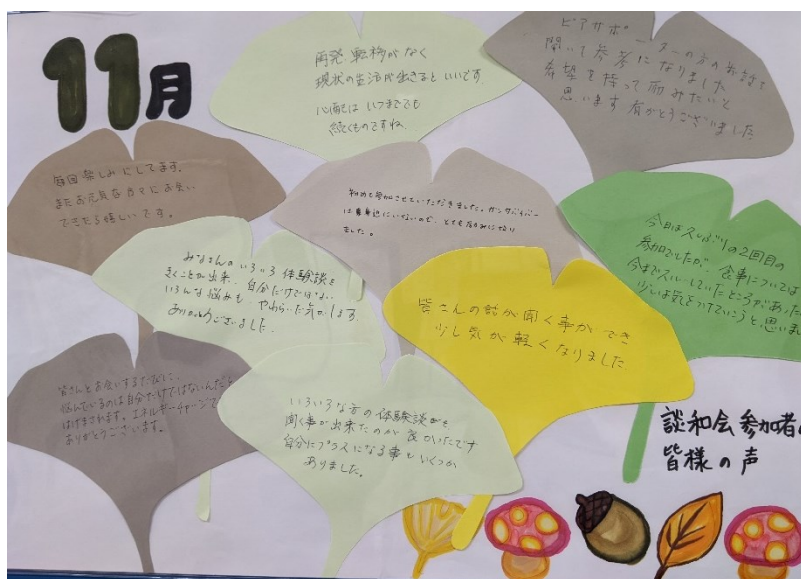 11月
再発転移がなく
現状の生活が出きるといいです
心配は いつまでても
続くものですね
ピアサポーターの方のお話を
聞いて参考になりました
希望を持って励みたいと
思います 有がとうございました
毎回楽しみにしてます。
またお元気な方々にお会い
できたら嬉しいです。
初めて参加させていただきました。ガンサバイバー
は身近にいないので、とても励みになり
ました。
今日は久しぶりの2回目の
参加でしたが、食事については
今までスルーしていたところがあった
少しは気をつけていこうと思いま
みなさんのいろいろ体験談を
きくことが出来、自分だけではない
いろんな悩みも やわらいだ気がします
ありがとうございました。
皆さんの話が聞く事ができ
少し気が軽くなりました
皆さんとお会いするたびに、
悩んでいるのは自分だけではないんだと
はげまされます。エネルギーチャージで
ありがとうございます。
いろいろな方の体験談を
聞く事が出来たのが良かったです
自分にプラスになる事もいくつか
ありました。
談和会参加者
皆様の声